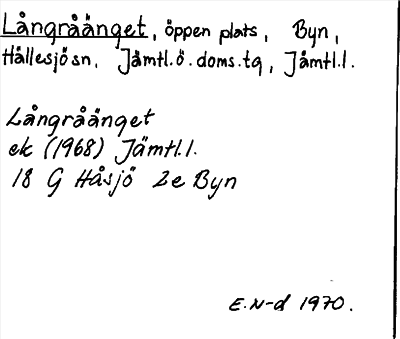 Långråänget, öppen plats, Byn,
Hällesjö sn, Jämtl.ö.doms.tg, Jämtl.l.
Långråänget
ek (1968) Jämtl.l.
18 G Håsjö 2e Byn
E.N-d 1970.